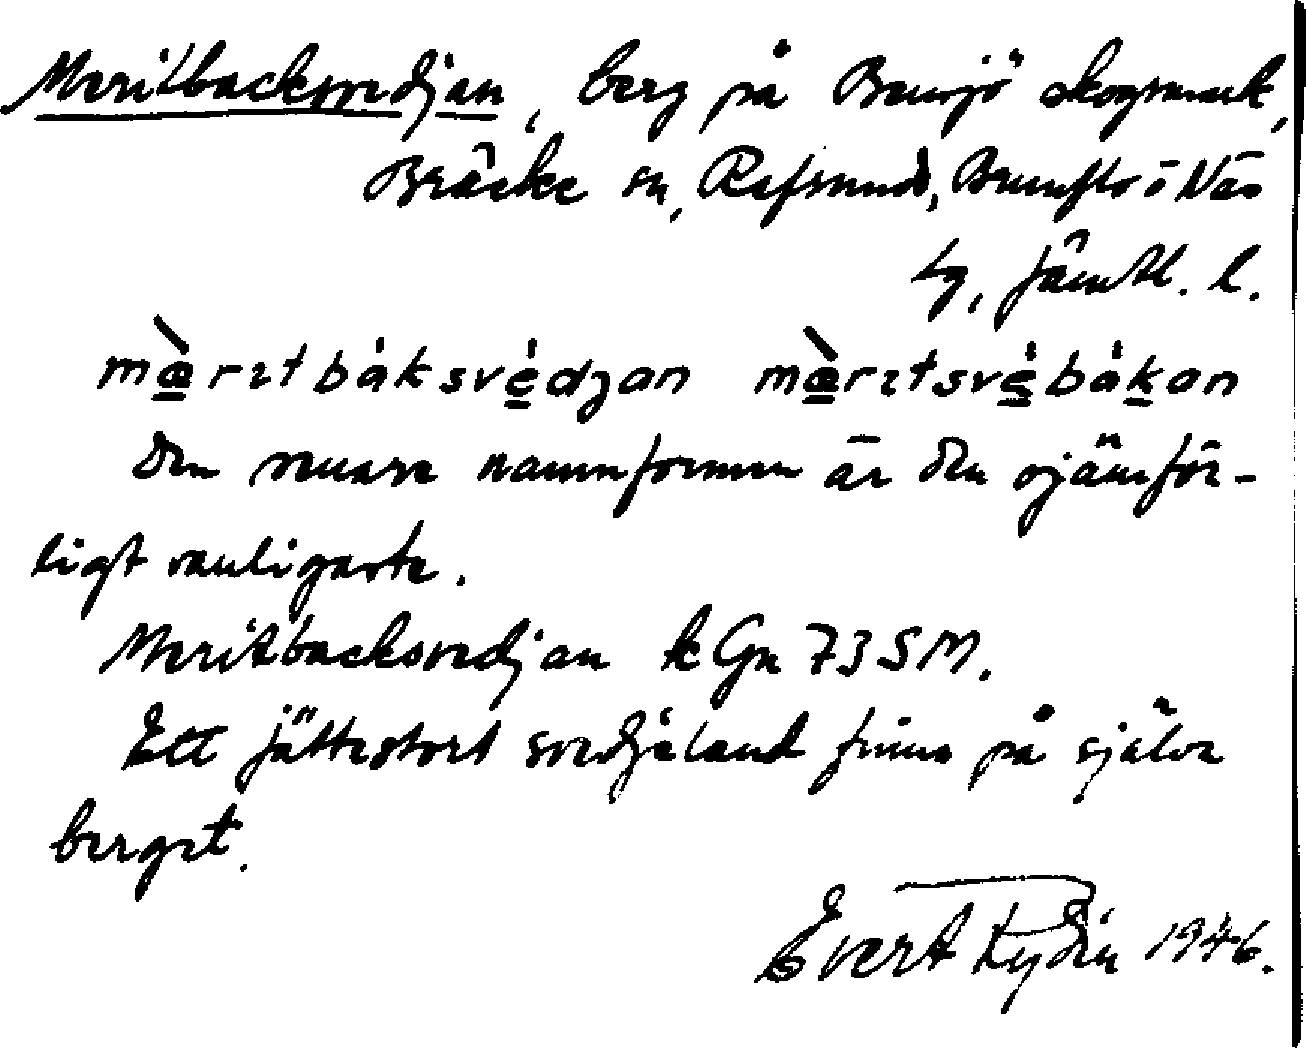 Meritbacksvedjan, berg på Bensjö skogsmark,
Bräcke sn, Refsunds, Brunflo o Näs
tg, Jämtl. l.
mæ̀rıtbáksvédjan mæ̀rıtsvébákan
Den senare namnformen är den ojämför-
ligt vanligaste.
Meritbacksvedjan k Gn 73 SM.
Ett jättestort svedjeland finns på själva
berget.
Evert Lydin 1946.